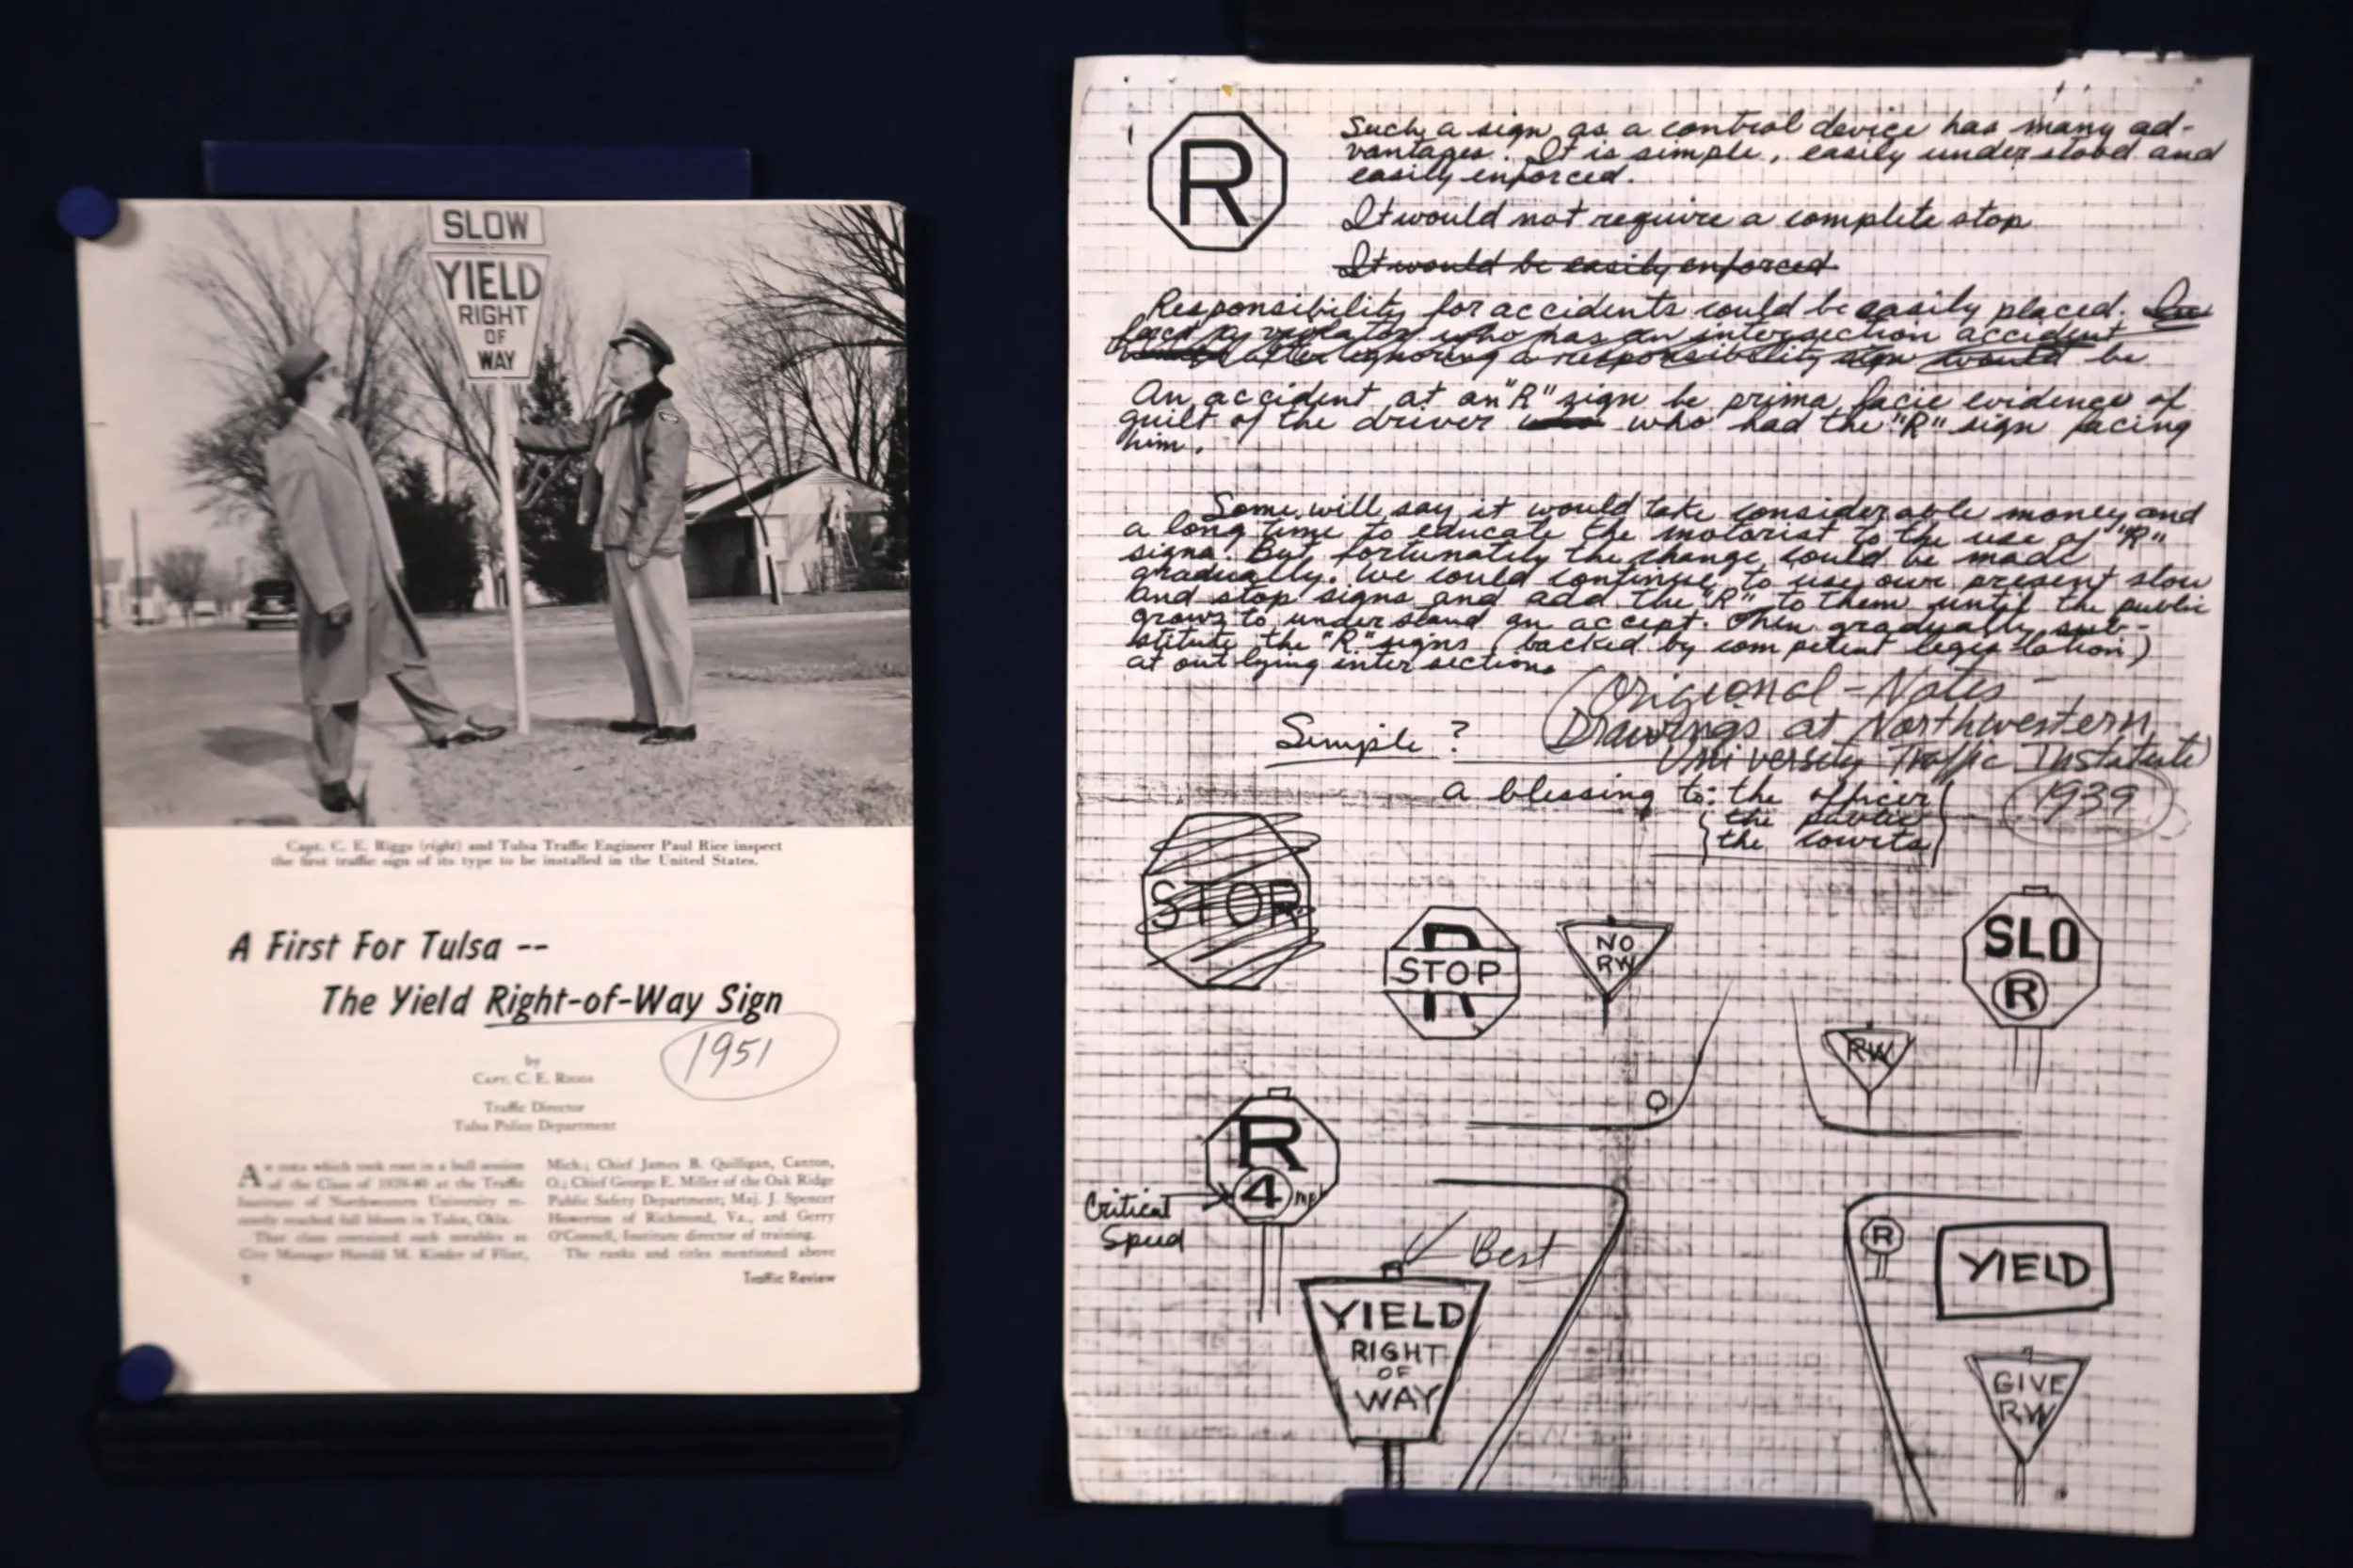 SLOW
YIELD
RIGHT
OF
WAY
Capt. C. E. Riggs (right) and Tulsa Traffic Engineer Paul Rice inspect
the first traffic sign of its type to be installed in the United States.
A First For Tulsa --
The Yield Right-of-Way Sign
1951
by
CAPT. C. E. RIGGS
Traffic Director
Tulsa Police Department
A which took root in a bull session
of the Class of 1939-40 at the Traffic
Institute of Northwestern University re-
cently reached full bloom in Tulsa, Okla.
That class contained such notables as
City Manager Harold M. Kinder of Flint,
Mich.; Chief James B. Quilligan, Canton,
O.; Chief George E. Miller of the Oak Ridge
Public Safety Department; Maj. J. Spencer
Howerton of Richmond, Va., and Gerry
O'Connell, Institute director of training.
The ranks and titles mentioned above
Traffic Review
R
Such a sign as a control device has many ad-
vantages. It is simple, easily understood and
easily enforced.
It would not require a complete stop
It would be easily enforced
Responsibility for accidents could be easily placed.
a violator who has an intersection accident
after ignoring a responsibility sign would be
An accident at an "R" sign be prima facie evidence of
guilt of the driver who had the "R" sign facing
him.
Some will say it would take considerable money and
a long time to educate the motorist to the use of "R"
signs. But fortunately the change could be made
gradually. We could continue to use our present slow
and stop signs and add the "R" to them until the public
grows to understand an accept. Then gradually sub-
stitute the "R" signs (backed by competent legislation)
at out lying intersections
(Origional-Notes-
Drawings at Northwestern
University Traffic Institute)
1939
Simple?
a blessing to: the officer
the public
the courts
STOP
R
STOP
NO
RW
SLO
R
RW
R
4 mph
Critical
Speed
Best
YIELD
RIGHT
OF
WAY
R
YIELD
GIVE
RW